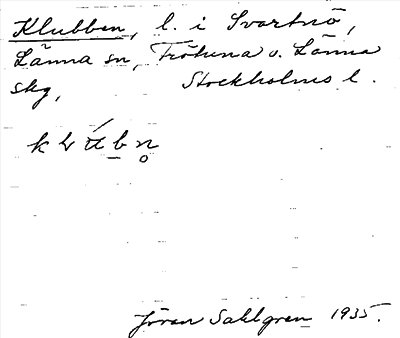 Klubben, l. i Svartnö,
Länna sn, Frötuna o. Länna
skg, Stockholms l.
Jöran Sahlgren 1935.